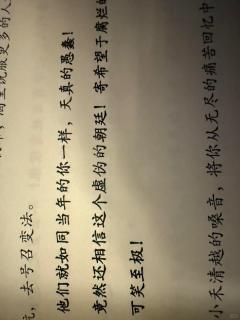 周里说服更多的人
，去号召变法。
他们就如同当年的你一样，天真的愚蠢！
竟然还相信这个虚伪的朝廷！寄希望于腐烂的
可笑至极！
小禾清越的嗓音，将你从无尽的痛苦回忆中